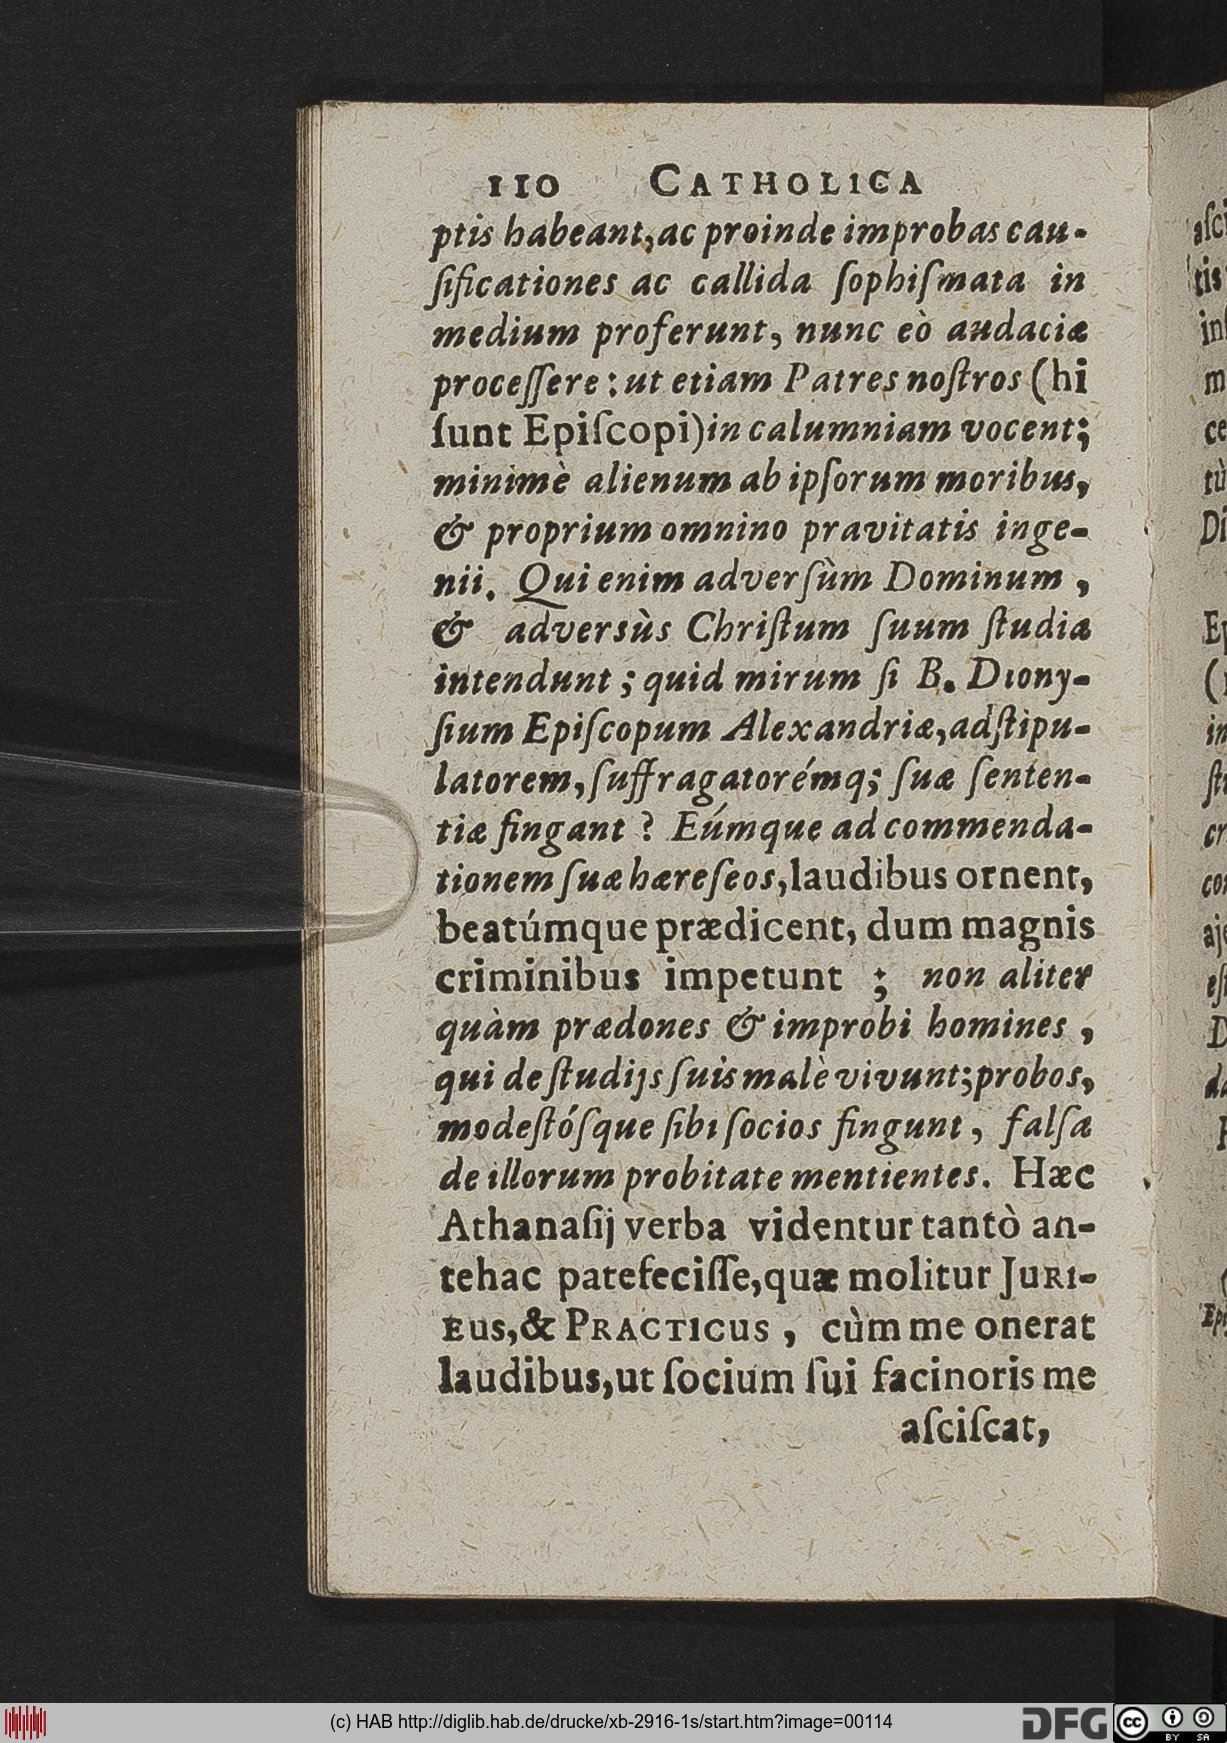 110 CATHOLICA
ptis habeant, ac proinde improbas cau-
ſificationes ac callida ſophiſmata in
medium proferunt, nunc eò audaciæ
proceſſere: ut etiam Patres noſtros (hi
ſunt Epiſcopi) in calumniam vocent;
minimè alienum ab ipſorum moribus,
& proprium omnino pravitatis inge-
nii. Qui enim adverſùm Dominum,
& adversùs Chriſtum ſuum ſtudia
intendunt; quid mirum ſi B. Diony-
ſium Epiſcopum Alexandriæ, adſtipu-
latorem, ſuffragatorémq; ſuæ ſenten-
tiæ fingant? Eúmque ad commenda-
tionem ſuæ hæreſeos, laudibus ornent,
beatúmque prædicent, dum magnis
criminibus impetunt; non aliter
quàm prædones & improbi homines,
qui de ſtudijs ſuis malè vivunt; probos,
modeſtóſque ſibi ſocios fingunt, falſa
de illorum probitate mentientes. Hæc
Athanaſij verba videntur tantò an-
tehac patefeciſſe, quæ molitur JURI-
EUS, & PRACTICUS, cùm me onerat
laudibus, ut ſocium ſui facinoris me
aſciſcat,
(c) HAB http://diglib.hab.de/drucke/xb-2916-1s/start.htm?image=00114
DFG
cc BY SA